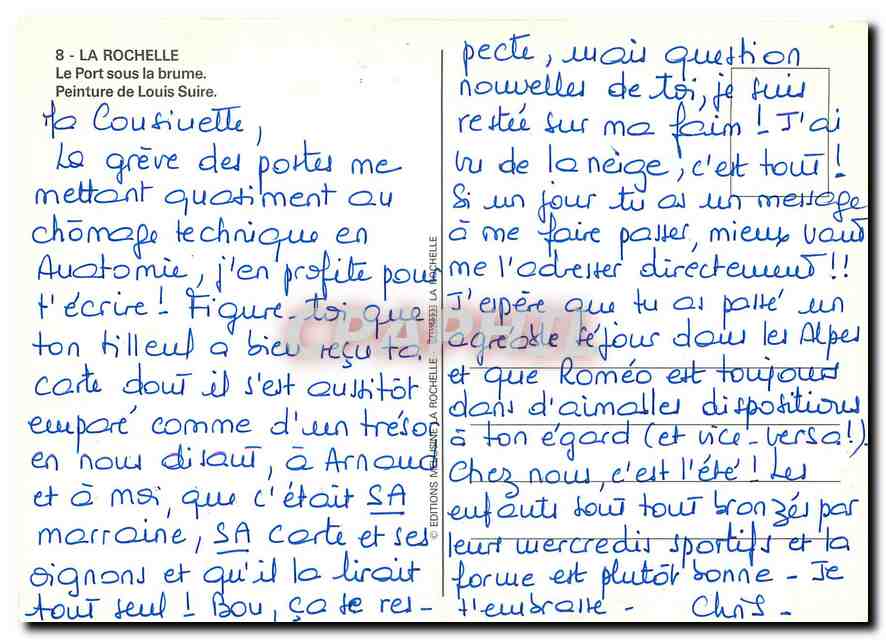 8 - LA ROCHELLE
Le Port sous la brume.
Peinture de Louis Suire.
Ma Cousinette,
La grève des postes me
mettant quasiment au
chômage technique en
Anatomie, j'en profite pour
t'écrire! Figure-toi que
ton filleul a bien reçu ta
carte dont il s'est aussitôt
emparé comme d'un trésor
en nous disant, à Arnaud
et à moi, que c'était SA
marraine, SA carte et ses
oignons et qu'il la lirait
tout seul! Bon, ça se res-
© EDITIONS MELUSINE LA ROCHELLE LA ROCHELLE
pecte, mais question
nouvelles de toi, je suis
restée sur ma faim! J'ai
vu de la neige, c'est tout!
Si un jour tu as un message
à me faire passer, mieux vaut
me l'adresser directement!!
J'espère que tu as passé un
agréable séjour dans les Alpes
et que Roméo est toujours
dans d'aimables dispositions
à ton égard (et vice-versa!).
Chez nous, c'est l'été! Les
enfants sont tout bronzés par
leurs mercredis sportifs et la
forme est plutôt bonne - Je
t'embrasse - Chris -
CPAPHIL